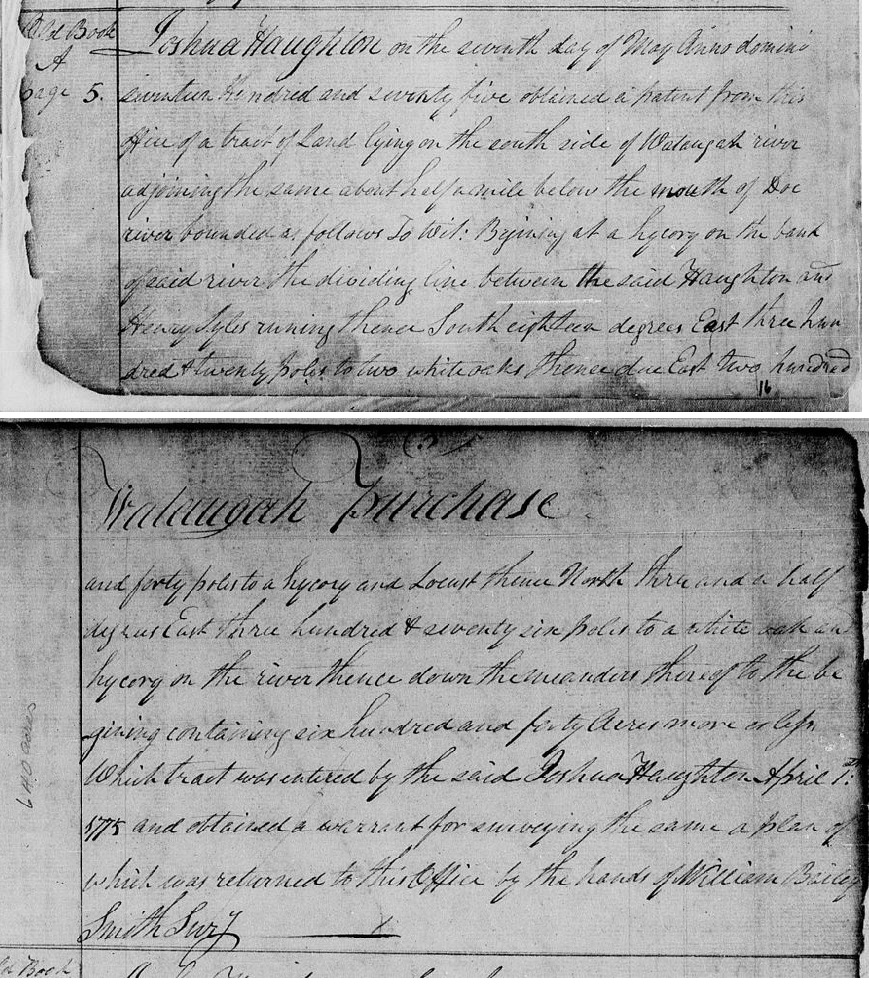 Old Book
A
page 5.
Joshua Haughton on the seventh day of May Anno domini
seventeen Hundred and seventy five obtained a patent from this
office of a tract of Land lying on the south side of Wataugah river
adjoining the same about half a mile below the mouth of Doe
river bounded as follows To Wit: Begining at a hycory on the bank
of said river the dividing line between the said Haughton and
Henry Lyles runing thence South eighteen degrees East three hun
dred & twenty poles to two white oaks thence due East two hundred
16
Wataugah Purchase
and forty poles to a hycory and Locust thence North three and a half
degrees East three hundred & seventy six poles to a white oak an
hycory on the river thence down the meanders thereof to the be
gining containing six hundred and forty Acres more or less
640 acres
Which tract was entered by the said Joshua Haughton April 1st:
1775 and obtained a warrant for surveying the same a plan of
which was returned to this Office by the hands of William Bailey
Smith Survr
Old Book